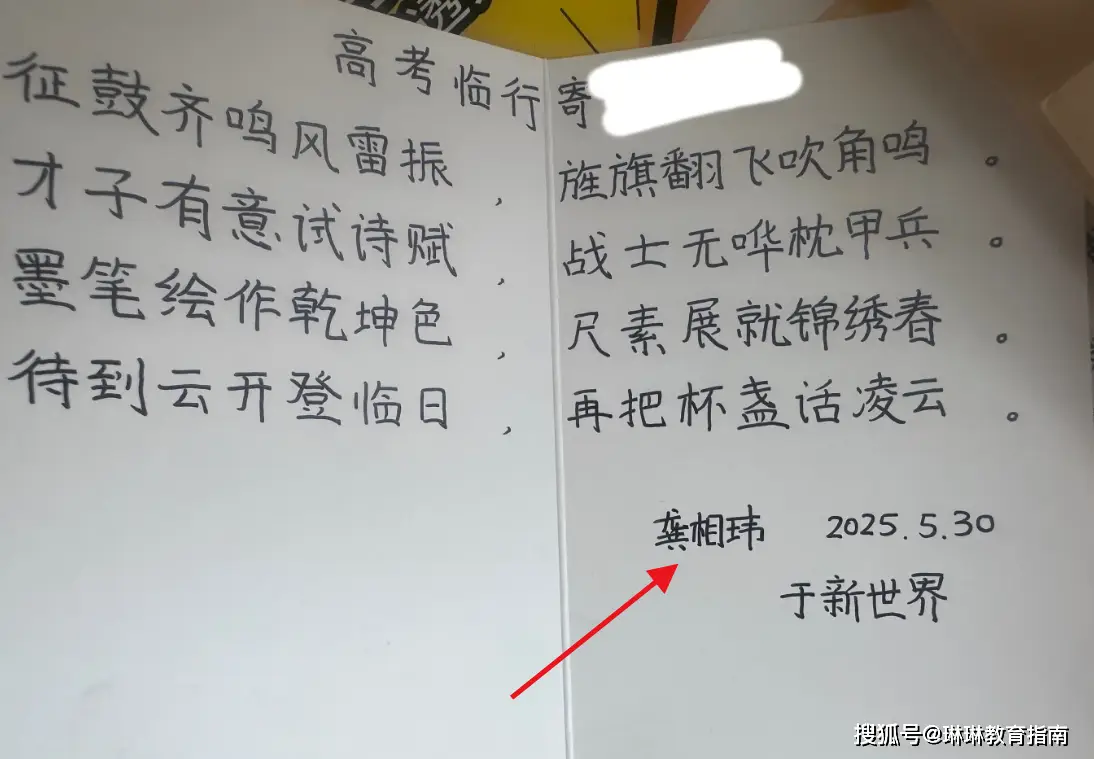 高考临行寄
征鼓齐鸣风雷振，旌旗翻飞吹角鸣。
才子有意试诗赋，战士无哗枕甲兵。
墨笔绘作乾坤色，尺素展就锦绣春。
待到云开登临日，再把杯盏话凌云。
龚相玮 2025.5.30
于新世界
搜狐号@琳琳教育指南